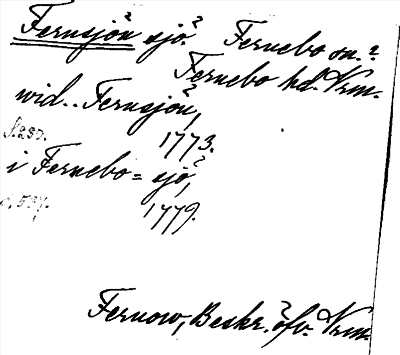 Fernsjön sjö. Fernebo sn.
Fernebo hd. Vrm.
wid.. Fernsjön,
1773.
i Fernebo=sjö,
1779.
Fernow, Beskr. öfv. Vrm.